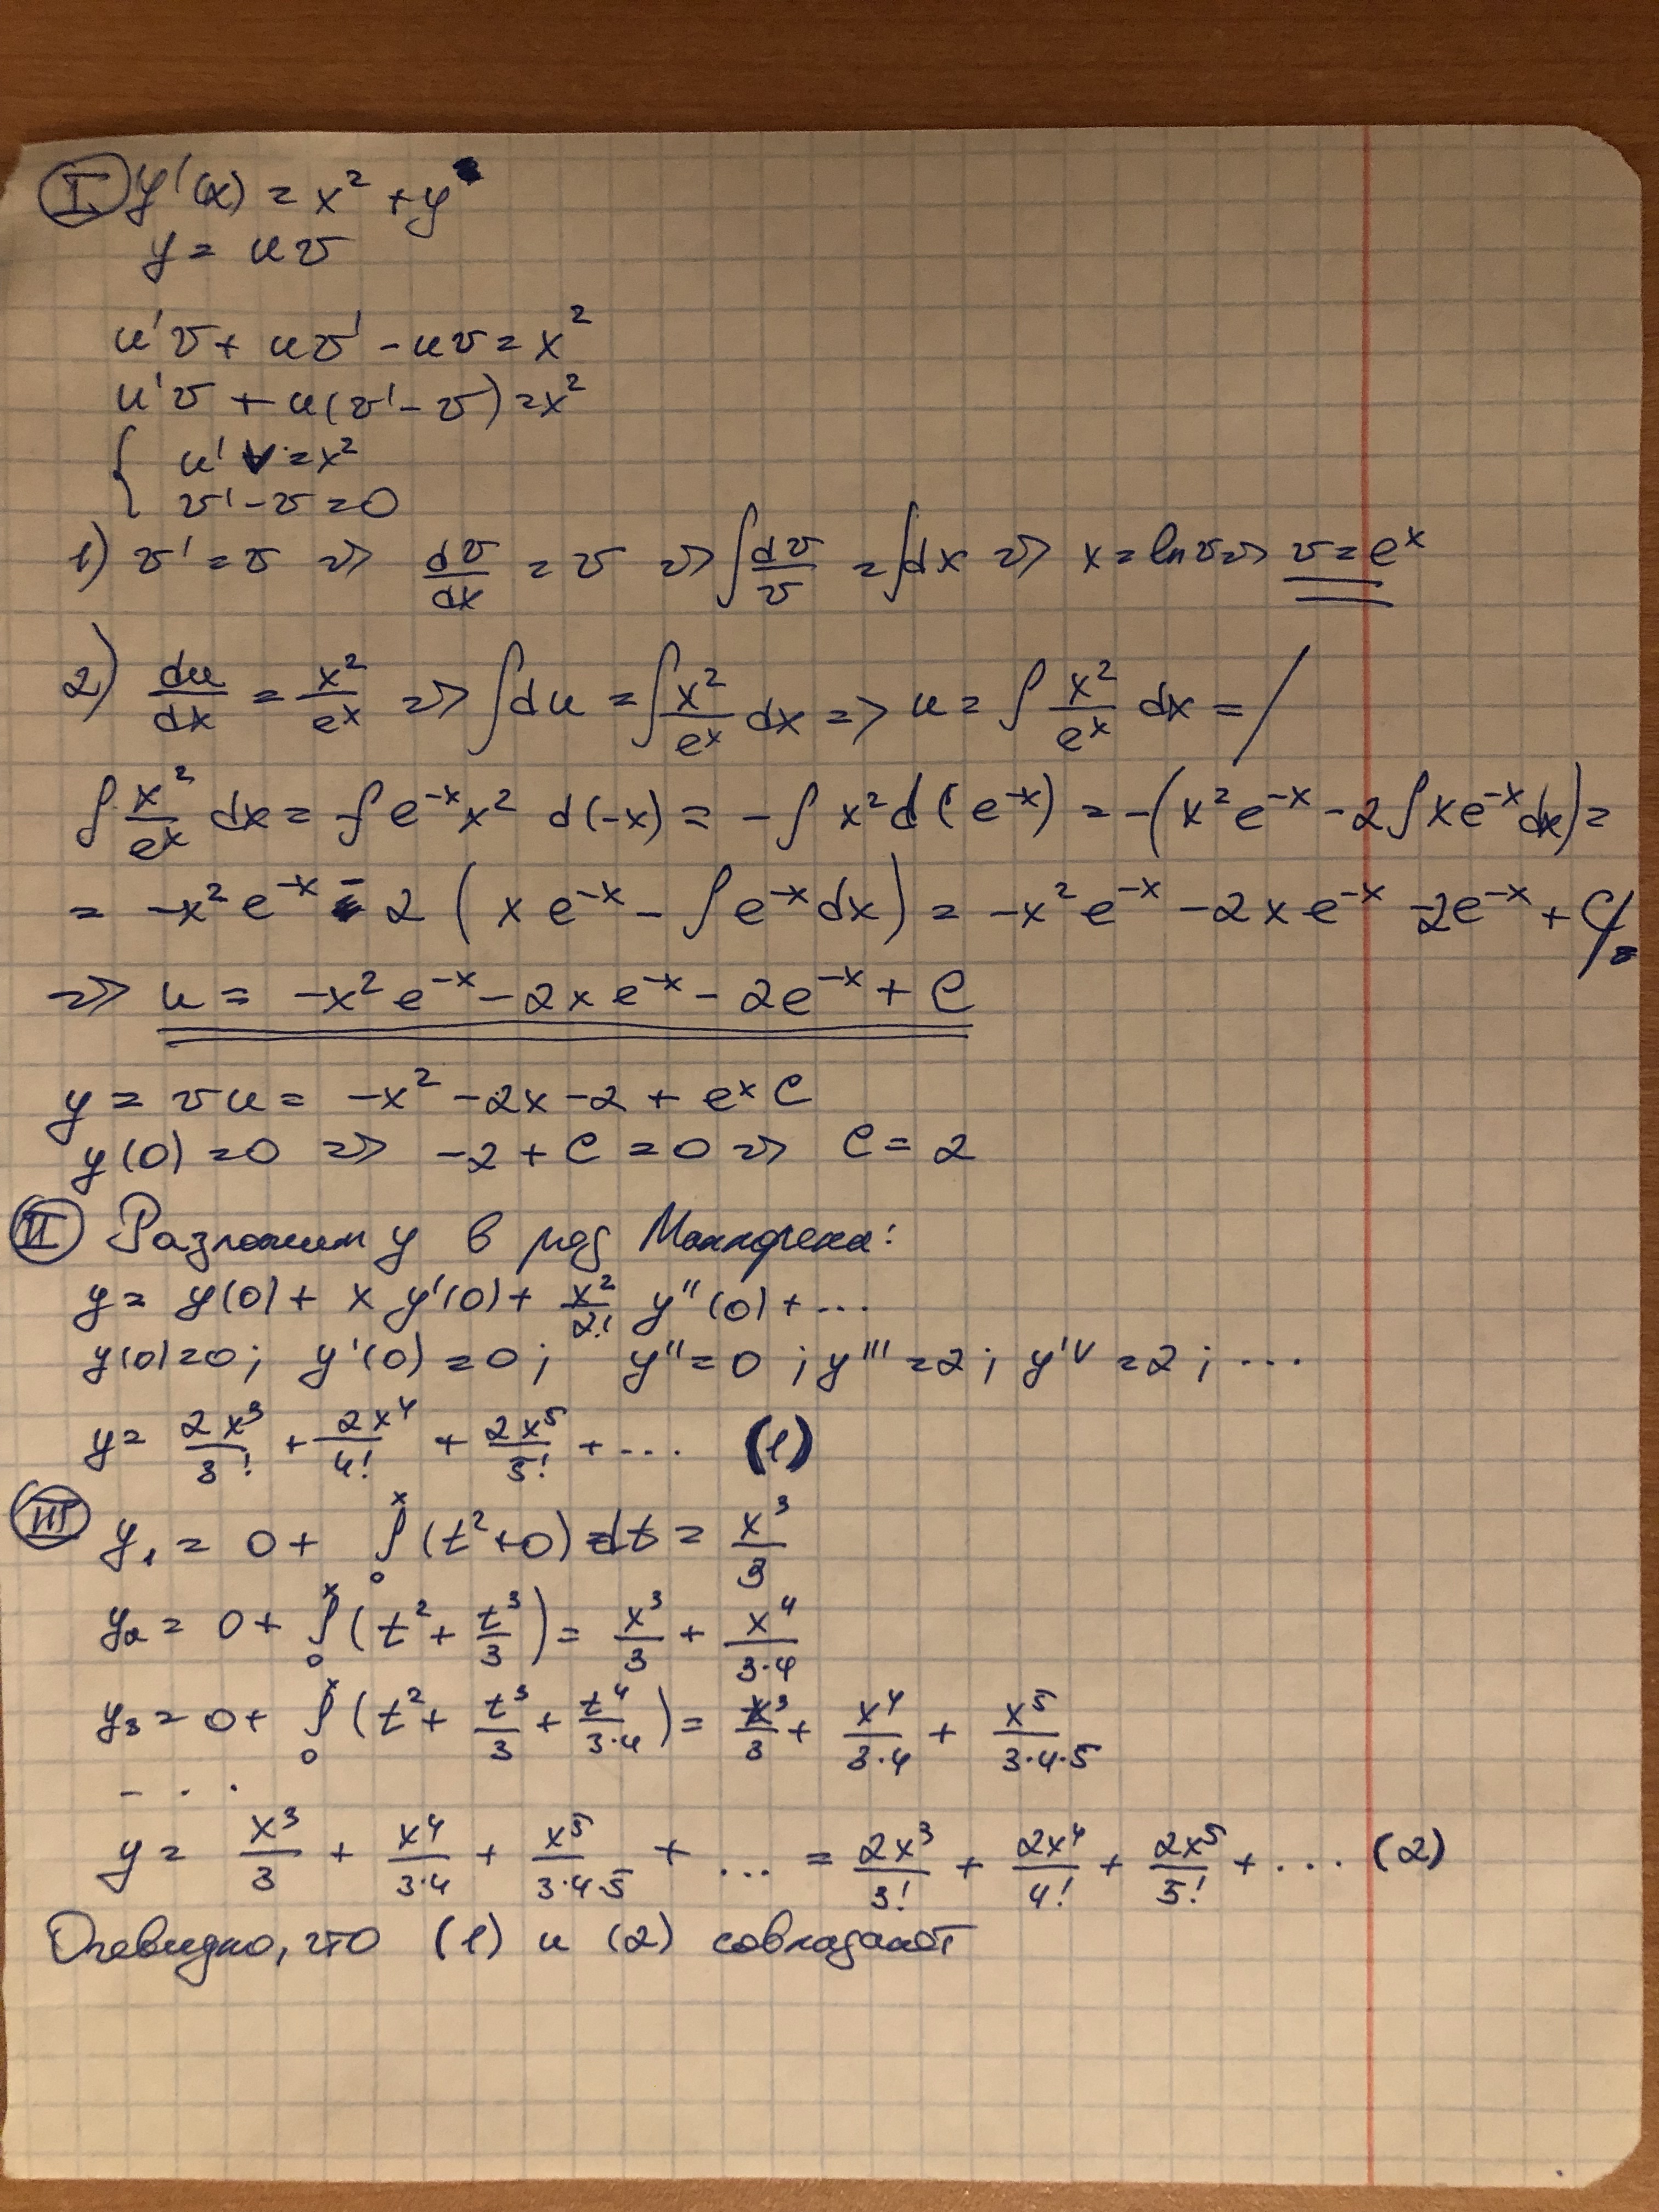 I. y'(x) = x² + y
y = uv
u'v + uv' - uv = x²
u'v + u(v' - v) = x²
{ u'v = x²
v' - v = 0
1) v' = v => dv/dx = v => ∫ dv/v = ∫dx => x = ln v => v = eˣ
2) du/dx = x²/eˣ => ∫du = ∫ x²/eˣ dx => u = ∫ x²/eˣ dx = /
∫ x²/eˣ dx = -∫ e⁻ˣ x² d(-x) = -∫ x² d(e⁻ˣ) = -(x²e⁻ˣ - 2∫xe⁻ˣdx) =
= -x²e⁻ˣ - 2 (xe⁻ˣ - ∫e⁻ˣdx) = -x²e⁻ˣ - 2xe⁻ˣ - 2e⁻ˣ + C/
=> u = -x²e⁻ˣ - 2xe⁻ˣ - 2e⁻ˣ + C
y = vu = -x² - 2x - 2 + eˣC
y(0) = 0 => -2 + C = 0 => C = 2
II Разложим y в ряд Маклорена:
y = y(0) + x y'(0) + x²/2! y''(0) + ...
y(0) = 0; y'(0) = 0; y'' = 0; y''' = 2; y'ᵛ = 2; ...
y = 2x³/3! + 2x⁴/4! + 2x⁵/5! + ... (1)
III y₁ = 0 + ∫₀ˣ (t² + 0) dt = x³/3
y₂ = 0 + ∫₀ˣ (t² + t³/3) = x³/3 + x⁴/3·4
y₃ = 0 + ∫₀ˣ (t² + t³/3 + t⁴/3·4) = x³/3 + x⁴/3·4 + x⁵/3·4·5
- . .
y = x³/3 + x⁴/3·4 + x⁵/3·4·5 + ... = 2x³/3! + 2x⁴/4! + 2x⁵/5! + ... (2)
Очевидно, что (1) и (2) совпадают